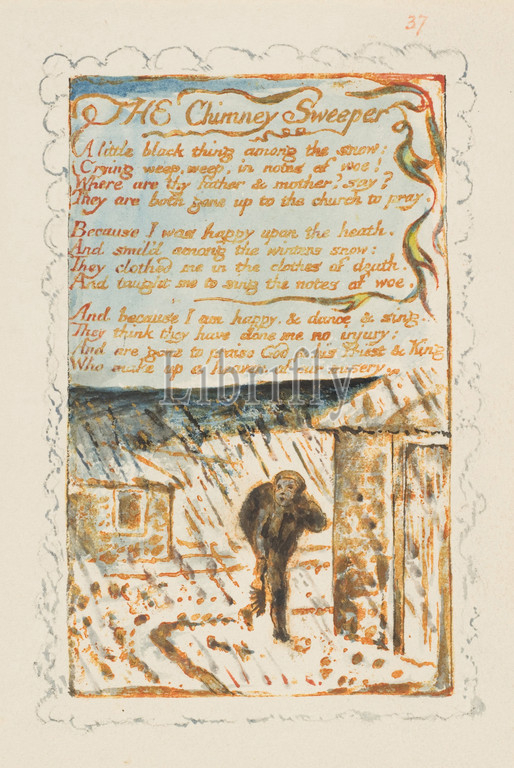 37
THE Chimney Sweeper
A little black thing among the snow:
Crying weep, weep, in notes of woe!
Where are thy father & mother? say?
They are both gone up to the church to pray.
Because I was happy upon the heath.
And smil'd among the winters snow:
They clothed me in the clothes of death.
And taught me to sing the notes of woe.
And because I am happy, & dance & sing,
They think they have done me no injury:
And are gone to praise God & his Priest & King
Who make up a heaven of our misery.
Librifly